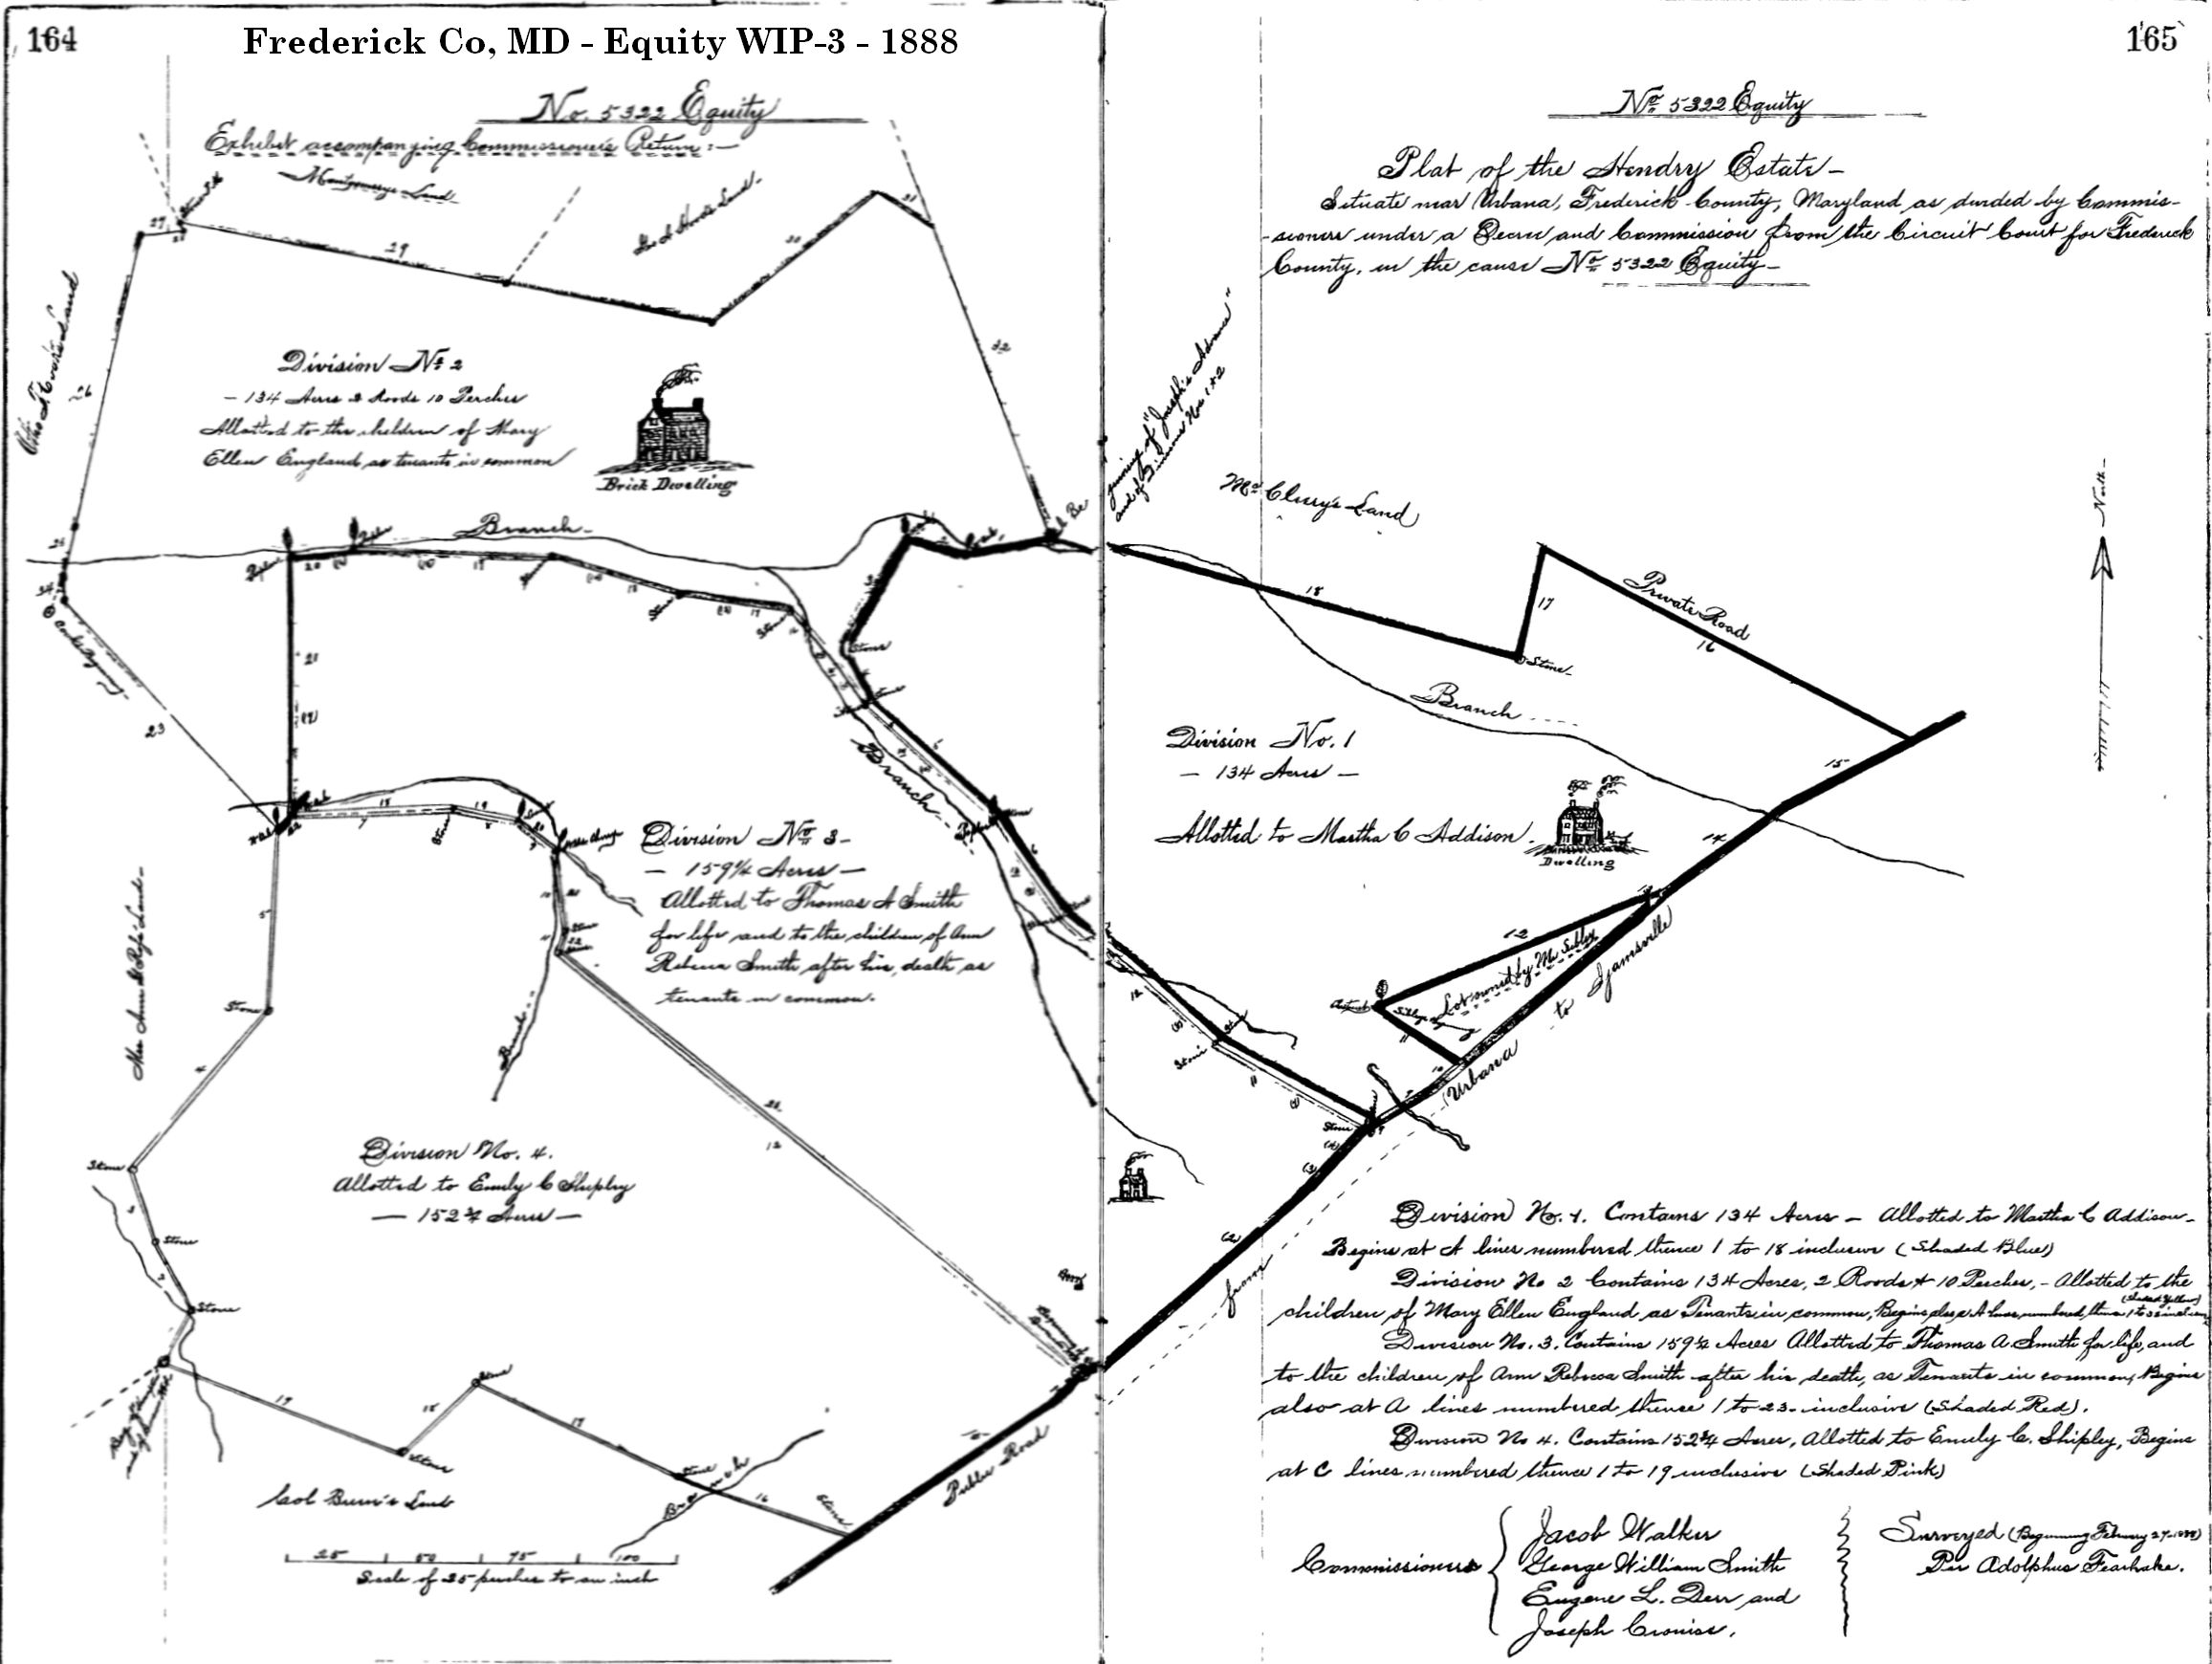 164
Frederick Co, MD - Equity WIP-3 - 1888
No. 5322 Equity
Exhibit accompanying Commissioner's Return:-
Montgomerys Land
Division No 2
- 134 Acres 2 Roods 10 Perches
Allotted to the children of Mary
Ellen England as tenants in common
Brick Dwelling
Branch
Branch
Division No 3-
- 159¼ Acres -
Allotted to Thomas A Smith
for life and to the children of Ann
Rebecca Smith after his death as
tenants in common.
Division No. 4.
Allotted to Emily C Shipley
- 152¾ Acres -
Branch
Public Road
25 50 75 100
Scale of 25 perches to an inch
165
No 5322 Equity
Plat of the Hendry Estate-
Situate near Urbana, Frederick County, Maryland as divided by Commis-
-sioners under a Decree and Commission from the Circuit Court for Frederick
County, in the cause No 5322 Equity-
"Joseph's Advance"
McClury's Land
North
Private Road
16
17
18
Stone
Branch
Division No. 1
- 134 Acres -
Allotted to Martha C Addison.
Dwelling
15
14
12
Lot owned by
from Urbana to Ijamsville
Division No. 1. Contains 134 Acres - Allotted to Martha C Addison-
Begins at A lines numbered thence 1 to 18 inclusive (Shaded Blue)
Division No 2 Contains 134 Acres, 2 Roods & 10 Perches, - Allotted to the
children of Mary Ellen England as Tenants in common, Begins also at A lines numbered thence 1 to
(Shaded Yellow)
Division No. 3. Contains 159¼ Acres Allotted to Thomas A. Smith for life, and
to the children of Ann Rebecca Smith after his death, as Tenants in common, Begins
also at A lines numbered thence 1 to 23 inclusive (Shaded Red).
Division No 4. Contains 152¾ Acres, Allotted to Emily C. Shipley, Begins
at C lines numbered thence 1 to 19 inclusive (Shaded Pink)
Commissioners
Jacob Walker
George William Smith
Eugene L. Derr and
Joseph Cronise.
Surveyed (Beginning February 27-1888)
Per Adolphus Fearhake.